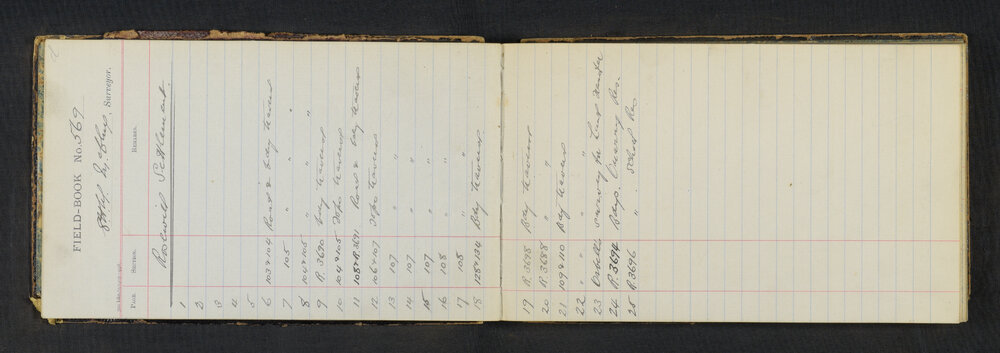 FIELD-BOOK No. 569
Surveyor.
PAGE. SECTION. REMARKS.
Settlement
1
2
3
4
5
6 103 & 104 Road & Bdy traverse
7 105 " "
8 104 & 105 " "
9 R. 3690 Bdy traverse
10 104 & 105 Topo traverse
11 108 & R. 3691 Road & Bdy traverse
12 106 & 107 Topo traverse
13 107 " "
14 107 " "
15 107 " "
16 108 " "
17 108 " "
18 128 & 134 Bdy traverse
19 R. 3698 Bdy traverse
20 R. 3688 " "
21 109 & 110 Bdy traverse
22 " "
23 survey for
24 R. 3694 Bdys. Quarry Res.
25 R. 3696 " School Res